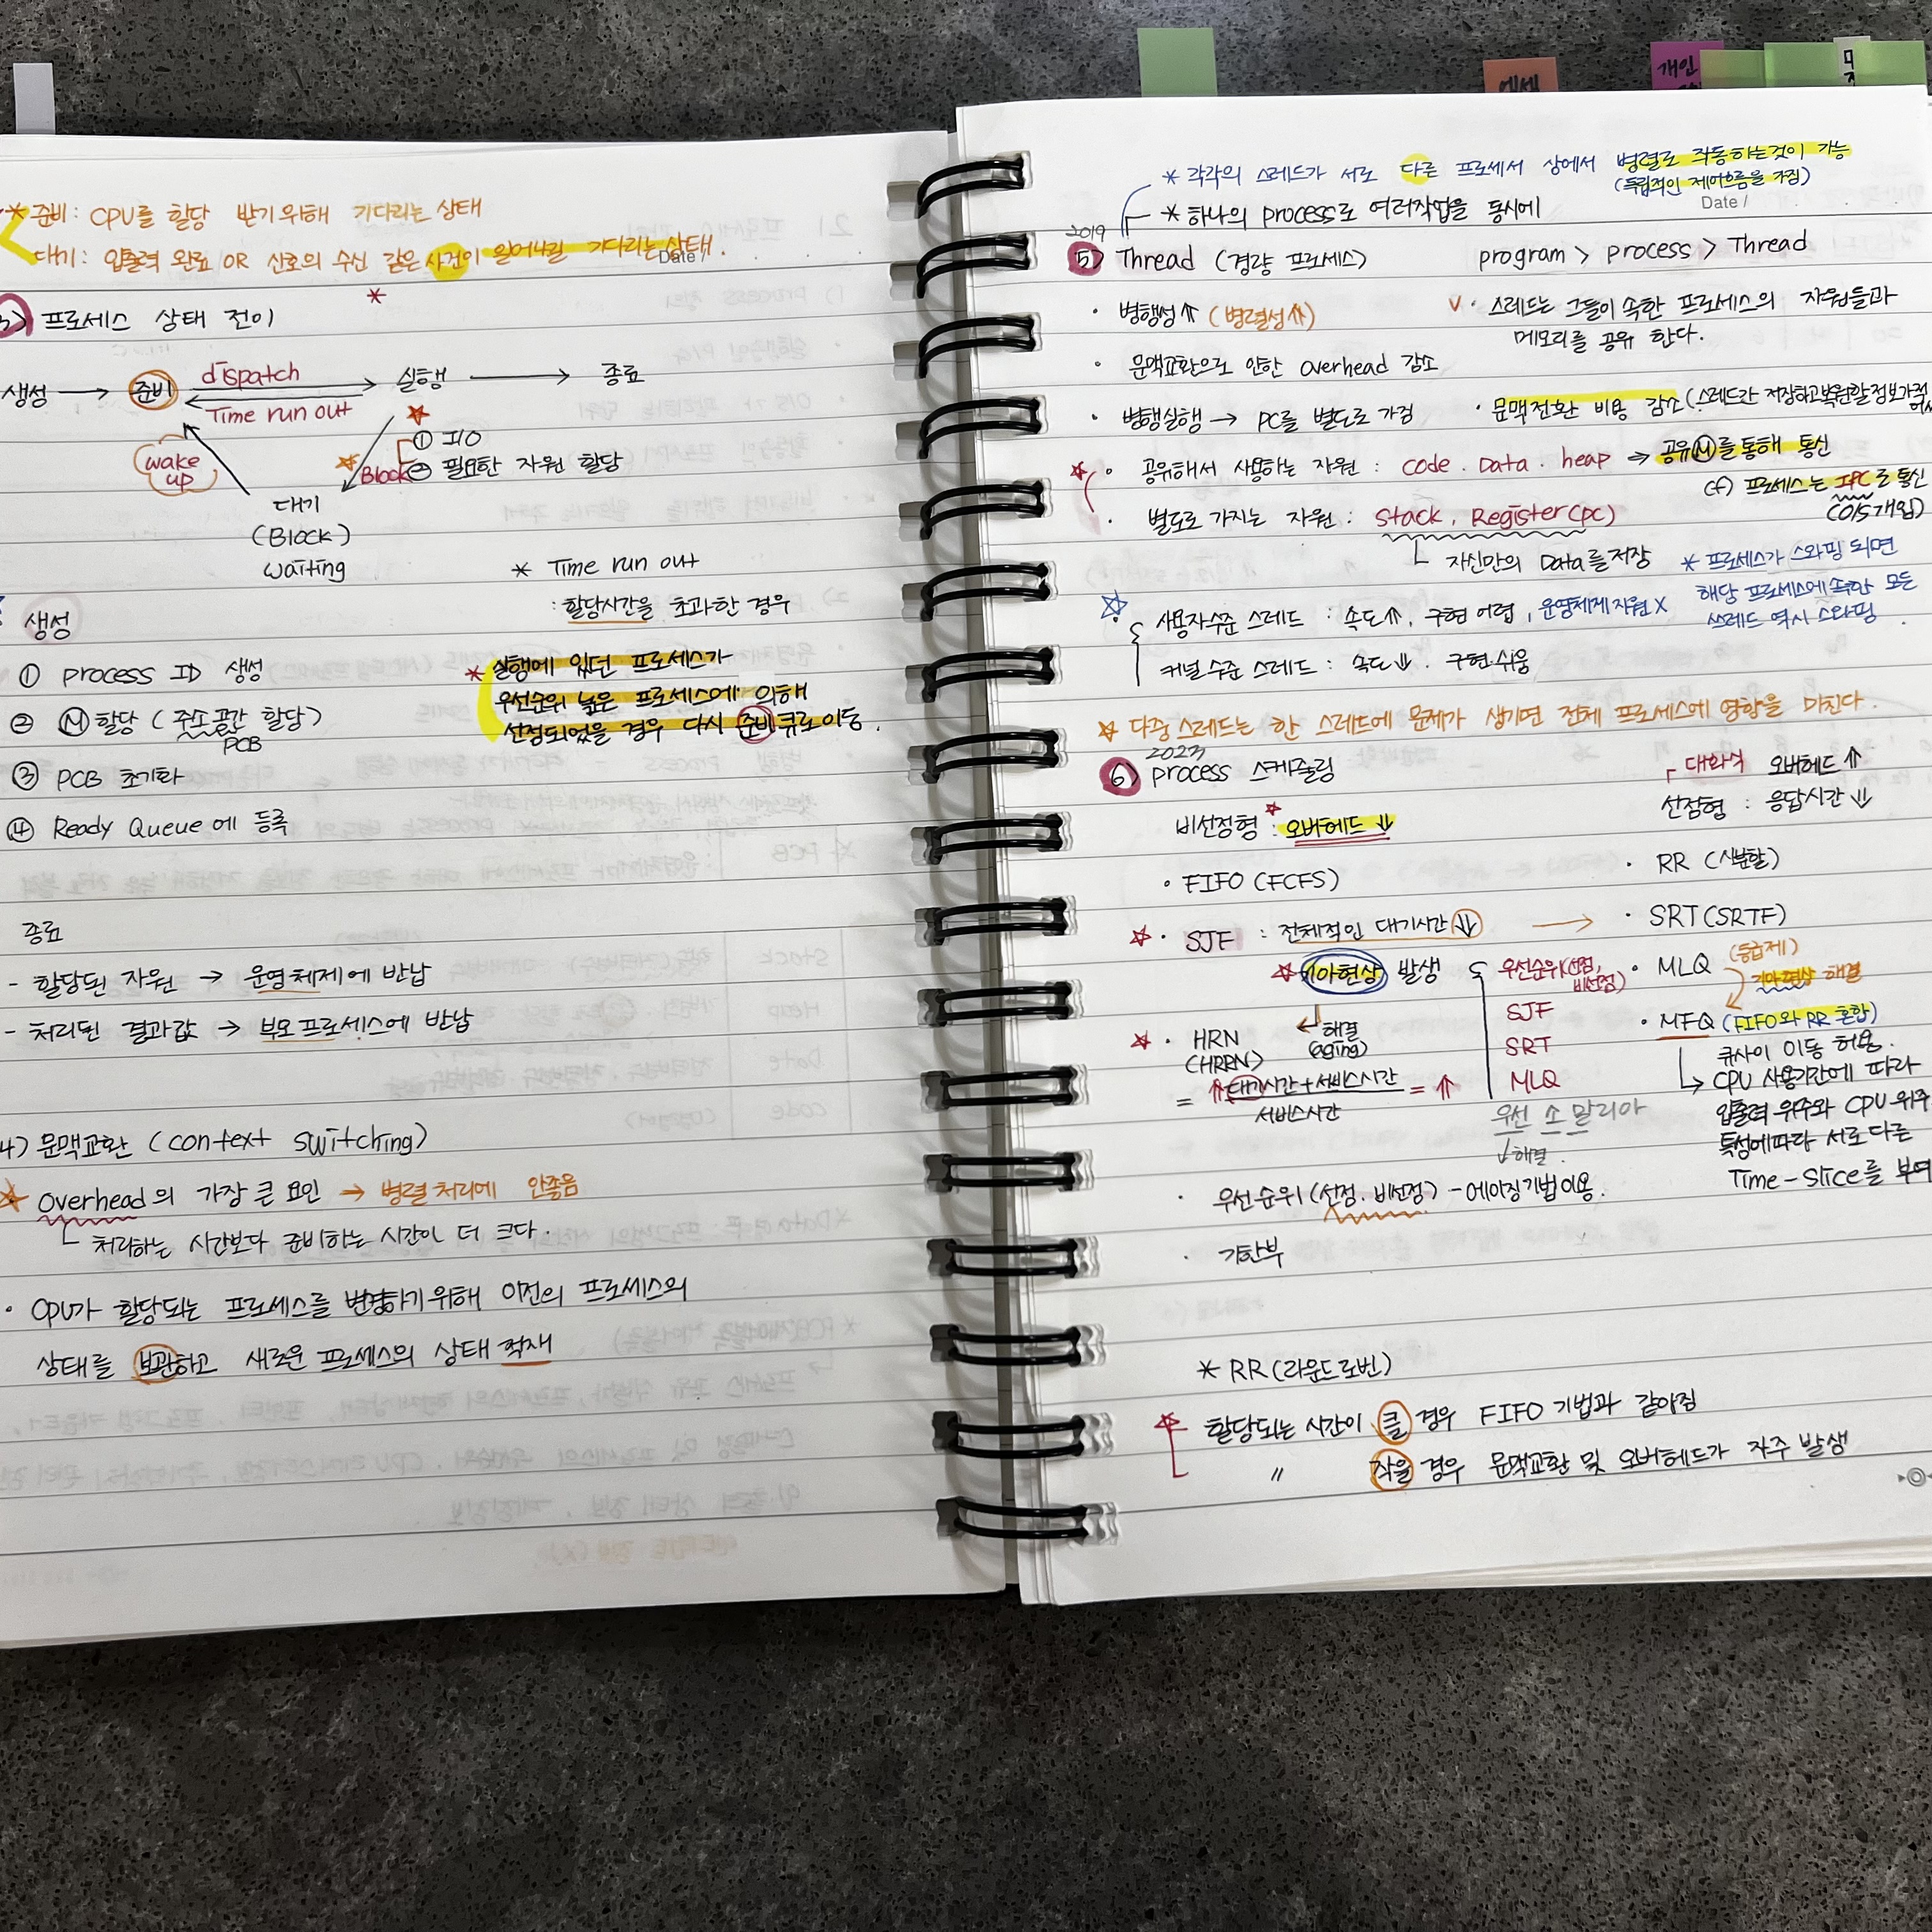 * 준비 : CPU를 할당 받기위해 기다리는 상태
대기 : 입출력 완료 OR 신호의 수신 같은 사건이 일어나길 기다리는 상태.
Date /
3) 프로세스 상태 전이
생성 → 준비 dispatch 실행 → 종료
Time run out
wake up
Block ① I/O
② 필요한 자원 할당
대기
(Block)
waiting
* Time run out
: 할당시간을 초과한 경우
생성
① process ID 생성
② M 할당 (주소공간 할당)
PCB
③ PCB 초기화
④ Ready Queue에 등록
* 실행에 있던 프로세스가
우선순위 높은 프로세스에 의해
선점되었을 경우 다시 준비 큐로 이동.
종료
- 할당된 자원 → 운영체제에 반납
- 처리된 결과값 → 부모프로세스에 반납
4) 문맥교환 (context switching)
overhead의 가장 큰 요인 → 병렬처리에 안좋음
처리하는 시간보다 준비하는 시간이 더 크다.
· CPU가 할당되는 프로세스를 변경하기 위해 이전의 프로세스의
상태를 보관하고 새로운 프로세스의 상태 적재
개인
* 각각의 스레드가 서로 다른 프로세서 상에서 병렬로 작동하는것이 가능
(독립적인 제어흐름을 가짐)
Date /
* 하나의 process로 여러작업을 동시에
2019
5) Thread (경량 프로세스) program > process > Thread
· 병행성⇑ (병렬성⇑)
v · 스레드는 그들이 속한 프로세스의 자원들과
메모리를 공유 한다.
· 문맥교환으로 인한 overhead 감소
· 병행실행 → PC를 별도로 가짐
· 문맥전환 비용 감소 (스레드간 저장하고 복원할 정보가 적
· 공유해서 사용하는 자원 : code . Data . heap → 공유 M를 통해 통신
(cf) 프로세스는 IPC로 통신
(O/S개입)
· 별도로 가지는 자원 : Stack, Register(pc)
자신만의 Data를 저장
* 프로세스가 스와핑 되면
해당 프로세스에 속한 모든
스레드 역시 스와핑.
사용자수준 스레드 : 속도⇑, 구현 어렵, 운영체제 자원 X
커널 수준 스레드 : 속도⇓. 구현 쉬움
다중 스레드는 한 스레드에 문제가 생기면 전체 프로세스에 영향을 미친다.
2023
6) process 스케줄링
비선점형 : 오버헤드 ⇓
대화식 오버헤드⇑
선점형 : 응답시간⇓
· FIFO (FCFS)
· RR (시분할)
· SJF : 전체적인 대기시간⇓ → · SRT (SRTF)
기아현상 발생
해결
(aging)
우선순위(선점, 비선점)
SJF
SRT
MLQ
우선 소 말리아
↓해결.
· MLQ (등급제)
기아현상 해결
· MFQ (FIFO와 RR 혼합)
큐사이 이동 허용.
→ CPU 사용기간에 따라
입출력 위주와 CPU 위주
특성에따라 서로 다른
Time-Slice를 부여
· HRN
(HRRN)
= ↑대기시간+서비스시간 = ⇑
서비스시간
· 우선순위 (선점. 비선점) - 에이징기법이용.
· 기한부
* RR (라운드로빈)
할당되는 시간이 큰 경우 FIFO 기법과 같아짐
〃 작을 경우 문맥교환 및 오버헤드가 자주 발생